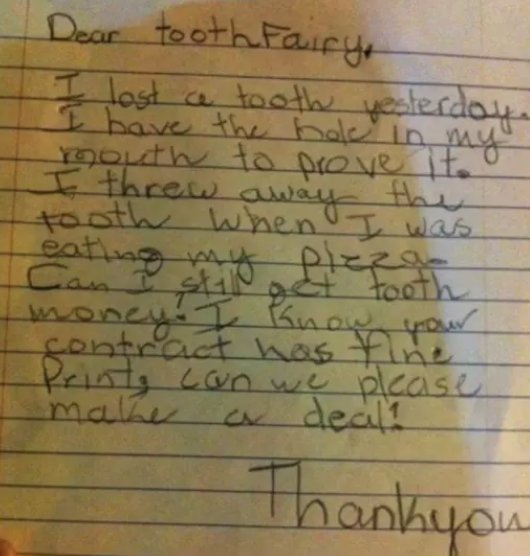 Dear toothFairy,
I lost a tooth yesterday.
I have the hole in my
mouth to prove it.
I threw away the
tooth when I was
eating my pizza.
Can I still get tooth
money? I know your
contract has fine
Print, can we please
make a deal?
Thankyou